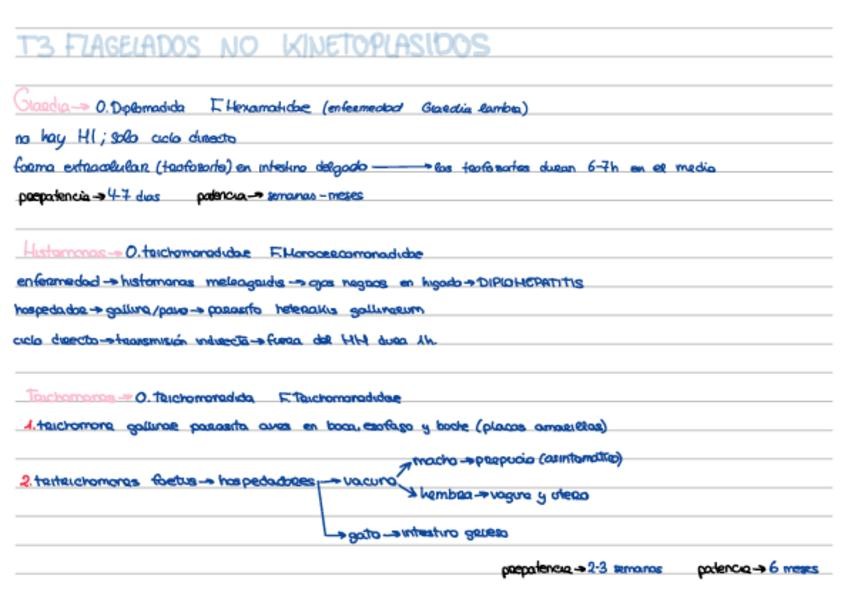 T3 FLAGELADOS NO KINETOPLASIDOS
Giardia → O. Diplomadida F. Hexamatidae (enfermedad Giardia lambia)
no hay HI; solo ciclo directo
forma extracelular (trofozoito) en intestino delgado → los trofozoitos duran 6-7h en el medio
prepatencia → 4-7 dias patencia → semanas-meses
Histomonas → O. trichomonadidae F. Monocercomonadidae
enfermedad → histomonas meleagridis → ojos negros en higado → DIPLOHEPATITIS
hospedador → gallina/pavo → parasito heterakis gallinarum
ciclo directo → transmisión indirecta → fuera del HH dura 1h
Trichomonas → O. Trichomonadida F. Trichomonadidae
1. trichomona gallinae parasita aves en boca, esofago y buche (placas amarillas)
macho → prepucio (asintomático)
2. tritrichomonas foetus → hospedadores → vacuno
hembra → vagina y utero
gato → intestino grueso
prepatencia → 2-3 semanas patencia → 6 meses